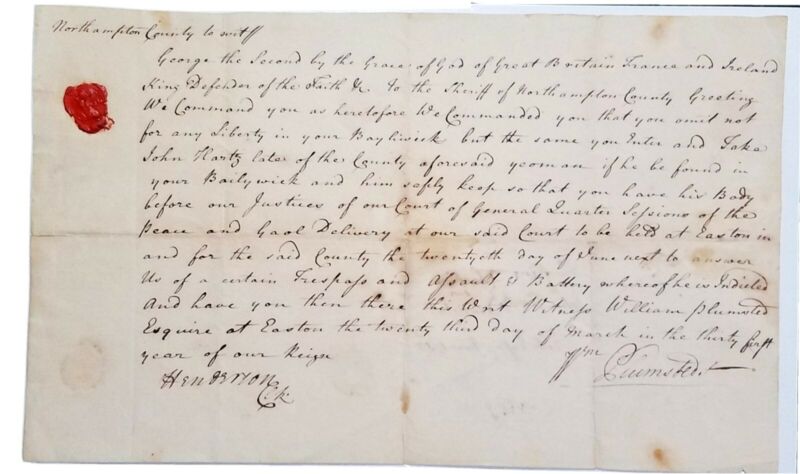 Northampton County to witt
George the Second by the Grace of God of Great Britain France and Ireland
King Defender of the Faith &c To the Sheriff of Northampton County Greeting
We Command you as heretofore We Commanded you that you omit not
for any Liberty in your Bayliwick but the same you Enter and Take
John Hartz late of the County aforesaid yeoman if he be found in
your Bailywick and him safly keep so that you have his Body
before our Justices of our Court of General Quarter Sessions of the
Peace and Gaol Delivery at our said Court to be held at Easton in
and for the said County the twentyeth day of June next to answer
Us of a certain Trespass and Assault & Battery whereof he is Indicted
And have you then there this Writ Witness William Plumsted
Esquire at Easton the twenty third day of March in the thirty first
year of our Reign
Wm Plumsted
Henderson
Clk